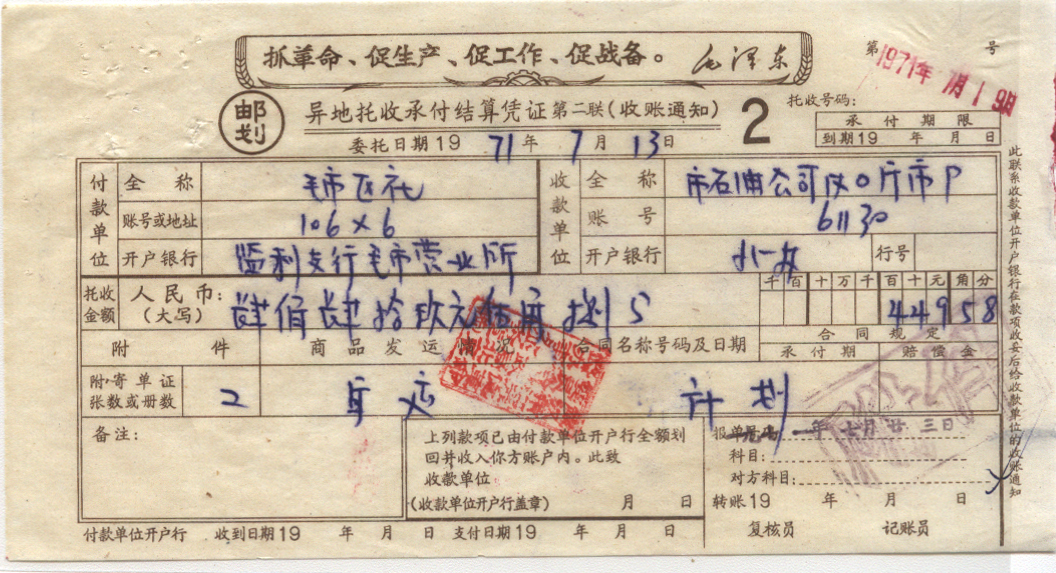 抓革命、促生产、促工作、促战备。 毛泽东
第 号
1971年 7月19日
邮划 异地托收承付结算凭证 第二联(收账通知) 2
托收号码:
承付期限
到期19 年 月 日
委托日期19 71年 7月 13日
付款单位 全称 毛市区社 收款单位 全称
账号或地址 106×6 账号 61130
开户银行 监利支行毛市营业所 开户银行 行号
托收金额 人民币:(大写) 肆佰肆拾玖元伍角捌分 千百十万千百十元角分 44958
附件 商品发运情况 合同名称号码及日期 合同规定
承付期 赔偿金
附寄单证张数或册数 2 计划
备注:
上列款项已由付款单位开户行全额划
回并收入你方账户内。此致
收款单位
(收款单位开户行盖章) 月 日
报单号码 年七月廿三日
科目:
对方科目:
转账19 年 月 日
复核员 记账员
付款单位开户行 收到日期19 年 月 日 支付日期19 年 月 日
此联系收款单位开户银行在款项收妥后给收款单位的收账通知